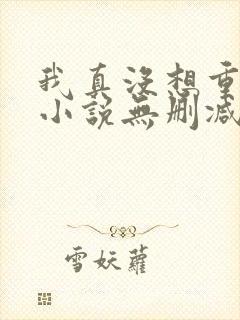 我真没想重
小说無删减
雪妖蘿